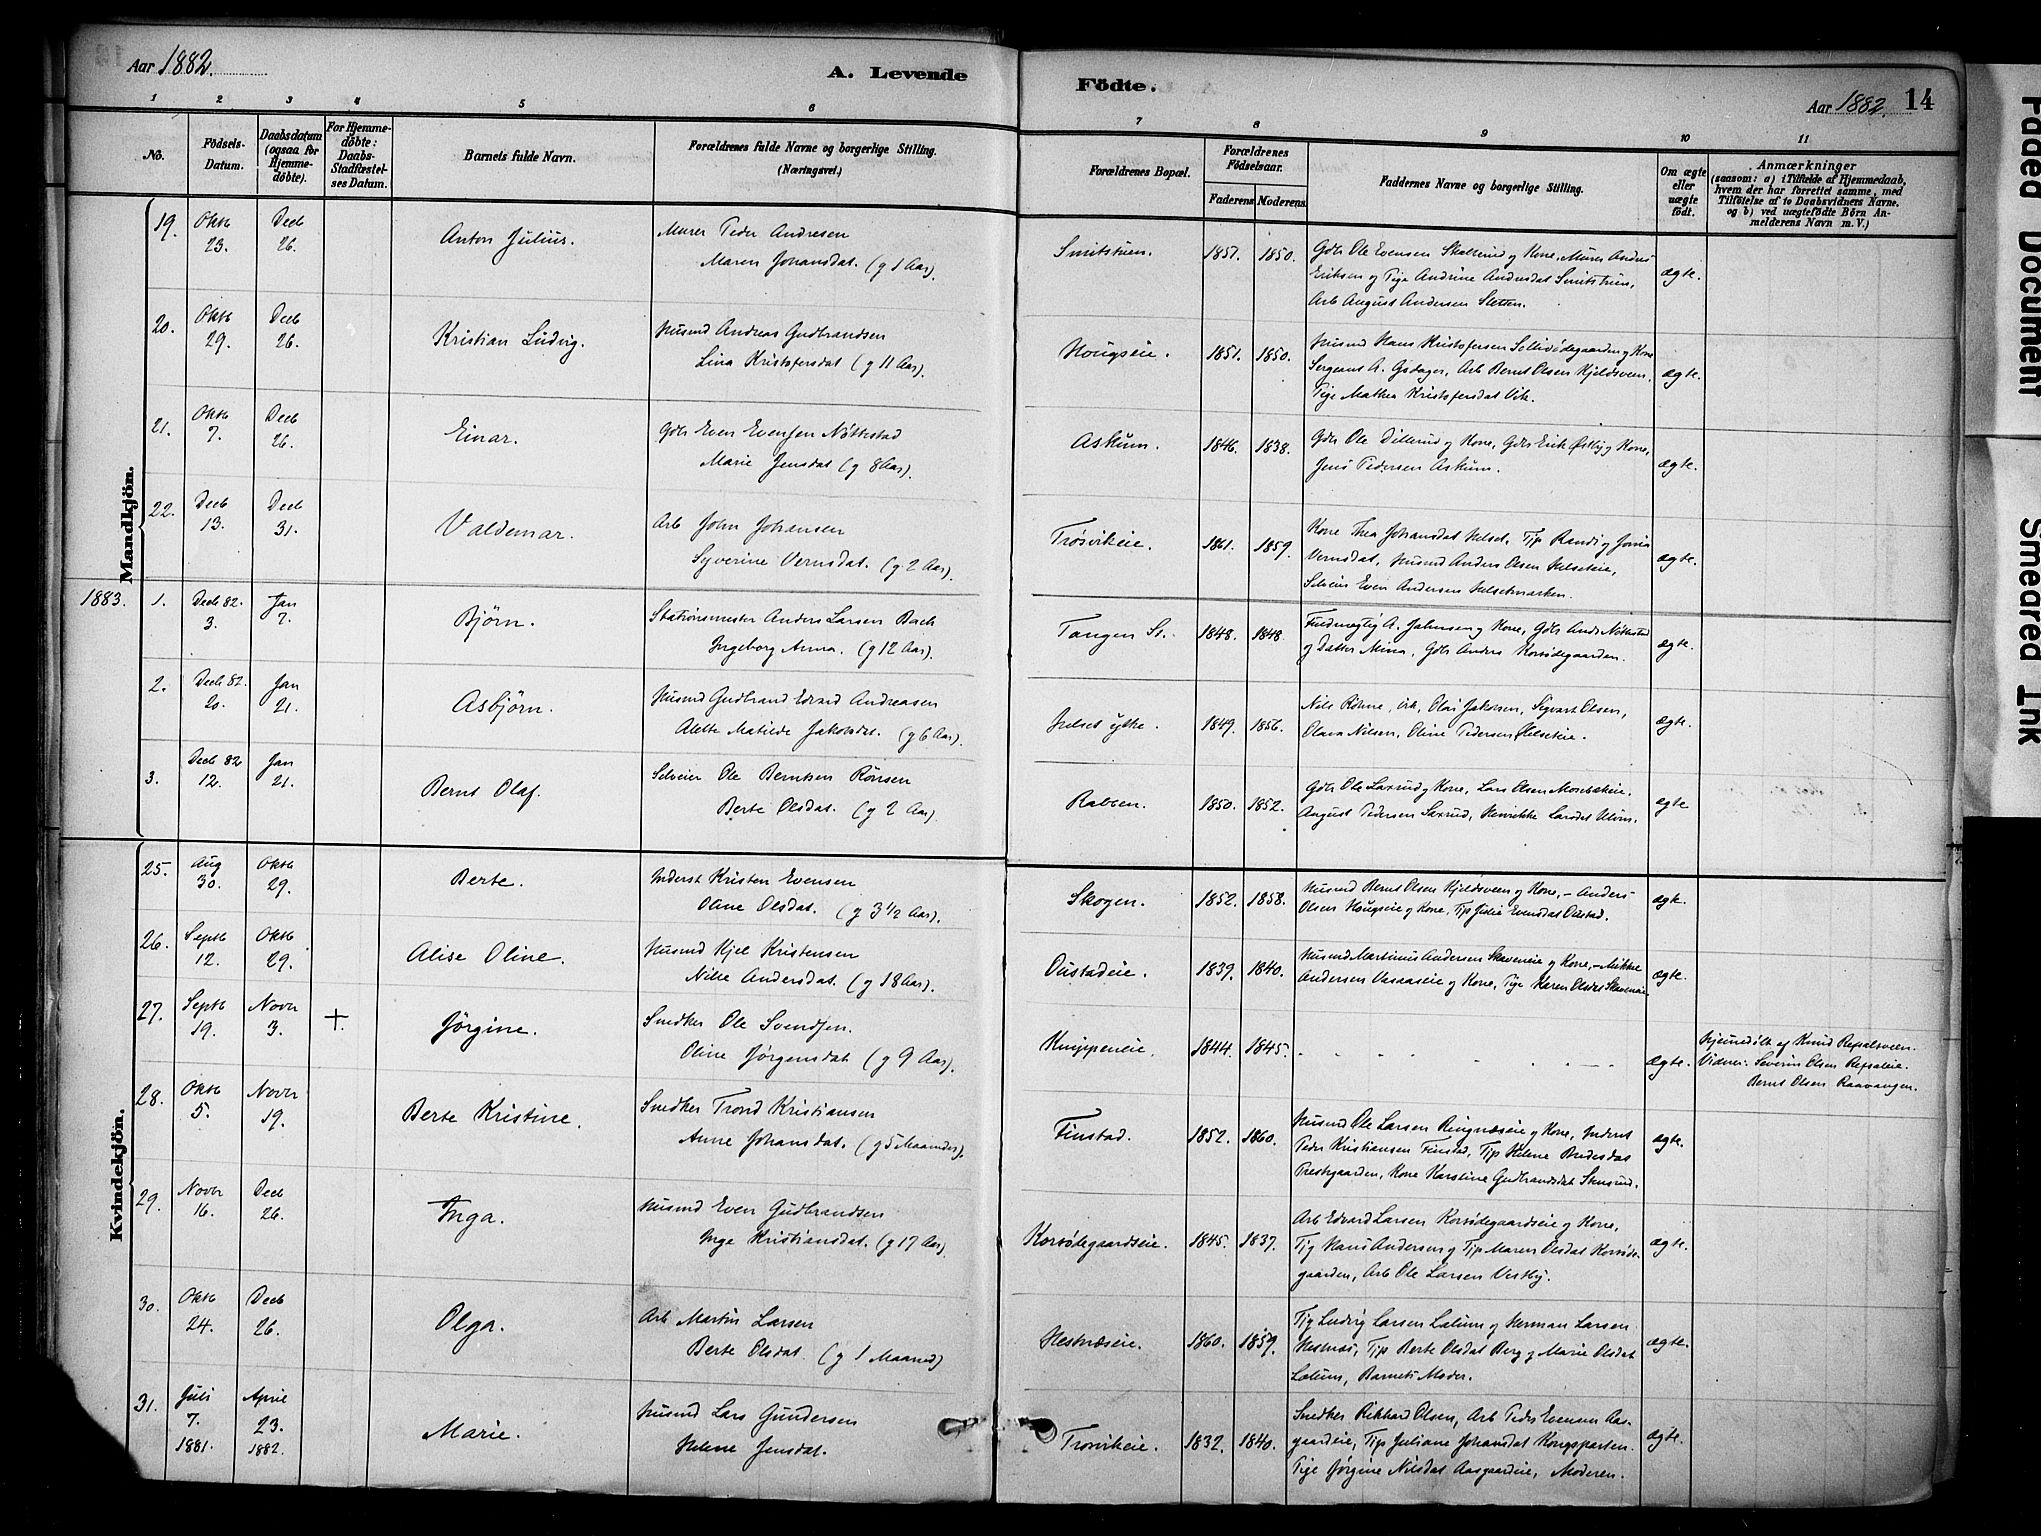 Aar 1882.
A. Levende
Födte.
Aar 1882.
14
1 2 3 4 5 6 7 8 9 10 11
No.
Födsels-Datum.
Daabsdatum (ogsaa for Hjemme-döbte).
For Hjemme-döbte: Daabs-Stadfæstel-ses Datum.
Barnets fulde Navn.
Forældrenes fulde Navne og borgerlige Stilling.
(Næringsvei.)
Forældrenes Bopæl.
Forældrenes Födselsaar.
Faderens Moderens
Faddernes Navne og borgerlige Stilling.
Om ægte eller uægte födt.
Anmærkninger
(saasom: a) i Tilfælde af Hjemmedaab,
hvem der har forrettet samme, med
Tilföielse af to Daabsvidners Navne.
og b) ved uægtefödte Börn An-
melderens Navn m. V.)
Mandkjön.
19. Oktb 23. Decb 26. Anton Julius. Murer Peder Andresen
Maren Johansdat. (g 1 Aar). 1857. 1850. Gdbr Ole Evensen og Kone, Murer Anders
Eriksen og Pige Andrine Andersdat
Arb August Andersen Sletten. ægte.
20. Oktb 29. Decb 26. Kristian Ludvig. Husmd Andreas Gudbrandsen
Lina Kristofersdat (g 11 Aar). Hougseie. 1851. 1850. Husmd Hans Kristofersen og Kone
Sergeant A. Gsdager, Arb Bernt Olsen Kjeldsveen,
Pige Mathea Kristofersdat Vik. ægte.
21. Oktb 7. Decb 26. Einar. Gdbr Even Evensen Nöttestad
Marie Jensdat (g 8 Aar). Askum. 1846. 1838. Gdbr Ole Dillerud og Kone, Gdbr Erik Østby og Kone,
Jens Pedersen Askum. ægte.
22. Decb 13. Decb 31. Valdemar. Arb John Johansen
Syverine Vernsdat. (g 2 Aar). Trösvikeie. 1861. 1859. Kone Thea Johansdat Helset, Pip Randi og
Vernsdat, Husmd Anders Olsen Helseteie,
Selveier Even Andersen Helsetmarken. ægte.
1883. 1. Decb 82. 3. Jan 7. Björn. Stationsmester Anders Larsen Bach
Ingeborg Anna. (g 12 Aar). Tangen St. 1848. 1848. A. Johnsen og Kone, Gdbr And Nöttestad
og Datter Mina, Gdbr Anders Korsödegaarden. ægte.
2. Decb 82. 20. Jan 21. Asbjörn. Husmd Gudbrand Edvard Andreasen
Alette Matilde Jakobsdat. (g 6 Aar). 1849. 1856. Nils Olai Jakobsen, Sigvart Olsen,
Olava Nilsen, Oline Pedersen Helseteie. ægte.
3. Decb 82 12. Jan 21. Bernt Olaf. Selveier Ole Berntsen Rönsen
Berte Olsdat. (g 2 Aar). Rabben. 1850. 1852. Gdbr Ole Saxrud og Kone, Lars Olsen
August Pedersen Saxrud, Henrikke Larsdat ægte
Kvindekjön.
25. Aug 30. Oktb 29. Berte. Inderst Kristen Evensen
Oline Olsdat. (g 3 1/2 Aar). Skogen. 1852. 1858. Husmd Bernt Olsen Kjeldsveen og Kone, – Anders
Olsen Hougseie og Kone, Pip Julie Evensdat Oustad. ægte.
26. Septb 12. Oktb 29. Alise Oline. Husmd Kjel Kristensen
Nilse Andersdat. (g 18 Aar). Oustadeie. 1839. 1840. Husmd Martinus Andersen Skaveneie og Kone, – Mikkel
Andersen og Kone, Pige Karen Olsdat ægte.
27. Septb 19. Novr 3. +. Jörgine. Snedker Ole Svendsen.
Oline Jörgensdat (g 9 Aar). Knippeneie. 1844. 1845. ægte. Hjemmedöbt af Knud
Vidner: Severin Olsen
Bernt Olsen Raavangen.
28. Oktb 5. Novr 19. Berte Kristine. Snedker Trond Kristiansen
Anne Johansdat. (g 5 Maaneder). Finstad. 1852. 1860. Husmd Ole Larsen Ringnæseie og Kone, Inderst
Peder Kristiansen Finstad, Pip Helene
Prestgaarden, Kone Karoline Gudbrandsdat ægte.
29. Novr 16. Decb 26. Inga. Husmd Even Gudbrandsen
Inge Kristiansdat. (g 17 Aar). Korsödegaardseie. 1845. 1837. Arb Edvard Larsen Korsödegaardseie og Kone,
Hans Andersen og Pip Maren Olsdat Korsöde-
gaarden, Arb Ole Larsen Vestby. ægte.
30. Oktb 24. Decb 26. Olga. Arb Martin Larsen
Berte Olsdat. (g 1 Maaned) Hestnæseie. 1860. 1859. Ludvig Larsen Lalum og Herman Larsen
Hestnæs, Pip Berte Olsdat Berg og Marie Olsdat
Lalum, Barnets Moder. ægte.
31. Juli 7. 1881. April 23. 1882. Marie. Husmd Lars Gundersen
Helene Jensdat. Trosvikeie. 1832. 1840. Snedker Rikhard Olsen, Arb Peder Evensen Aas-
gaardeie, Pip Juliane Johansdat Kongsparten.
Pige Jörgine Nilsdat Aasgaardeie, Moderen. ægte.
Faded Document
Smeared Ink